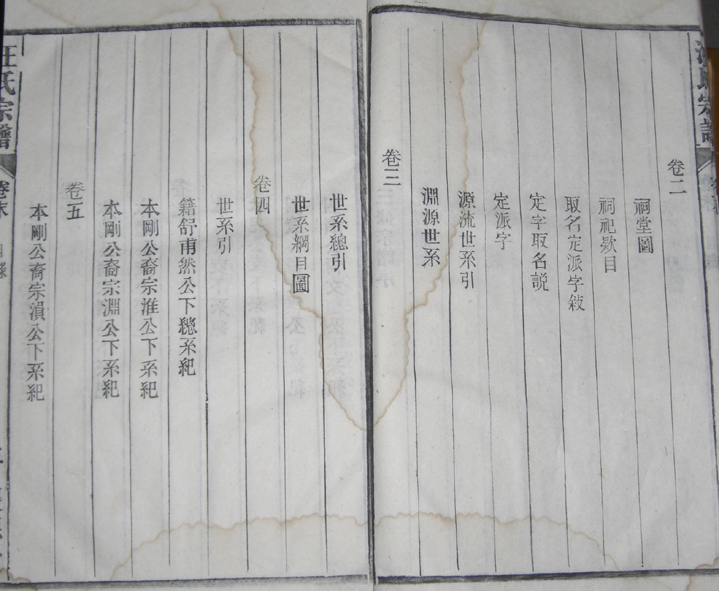 卷二
祠堂圖
祠祀欵目
取名定派字敍
定字取名説
定派字
源流世系引
淵源世系
卷三
世系總引
世系綱目圖
卷四
世系引
籍舒甫然公下總系紀
本剛公裔宗淮公下系紀
本剛公裔宗淵公下系紀
卷五
本剛公裔宗湏公下系紀
汪氏宗譜
目錄